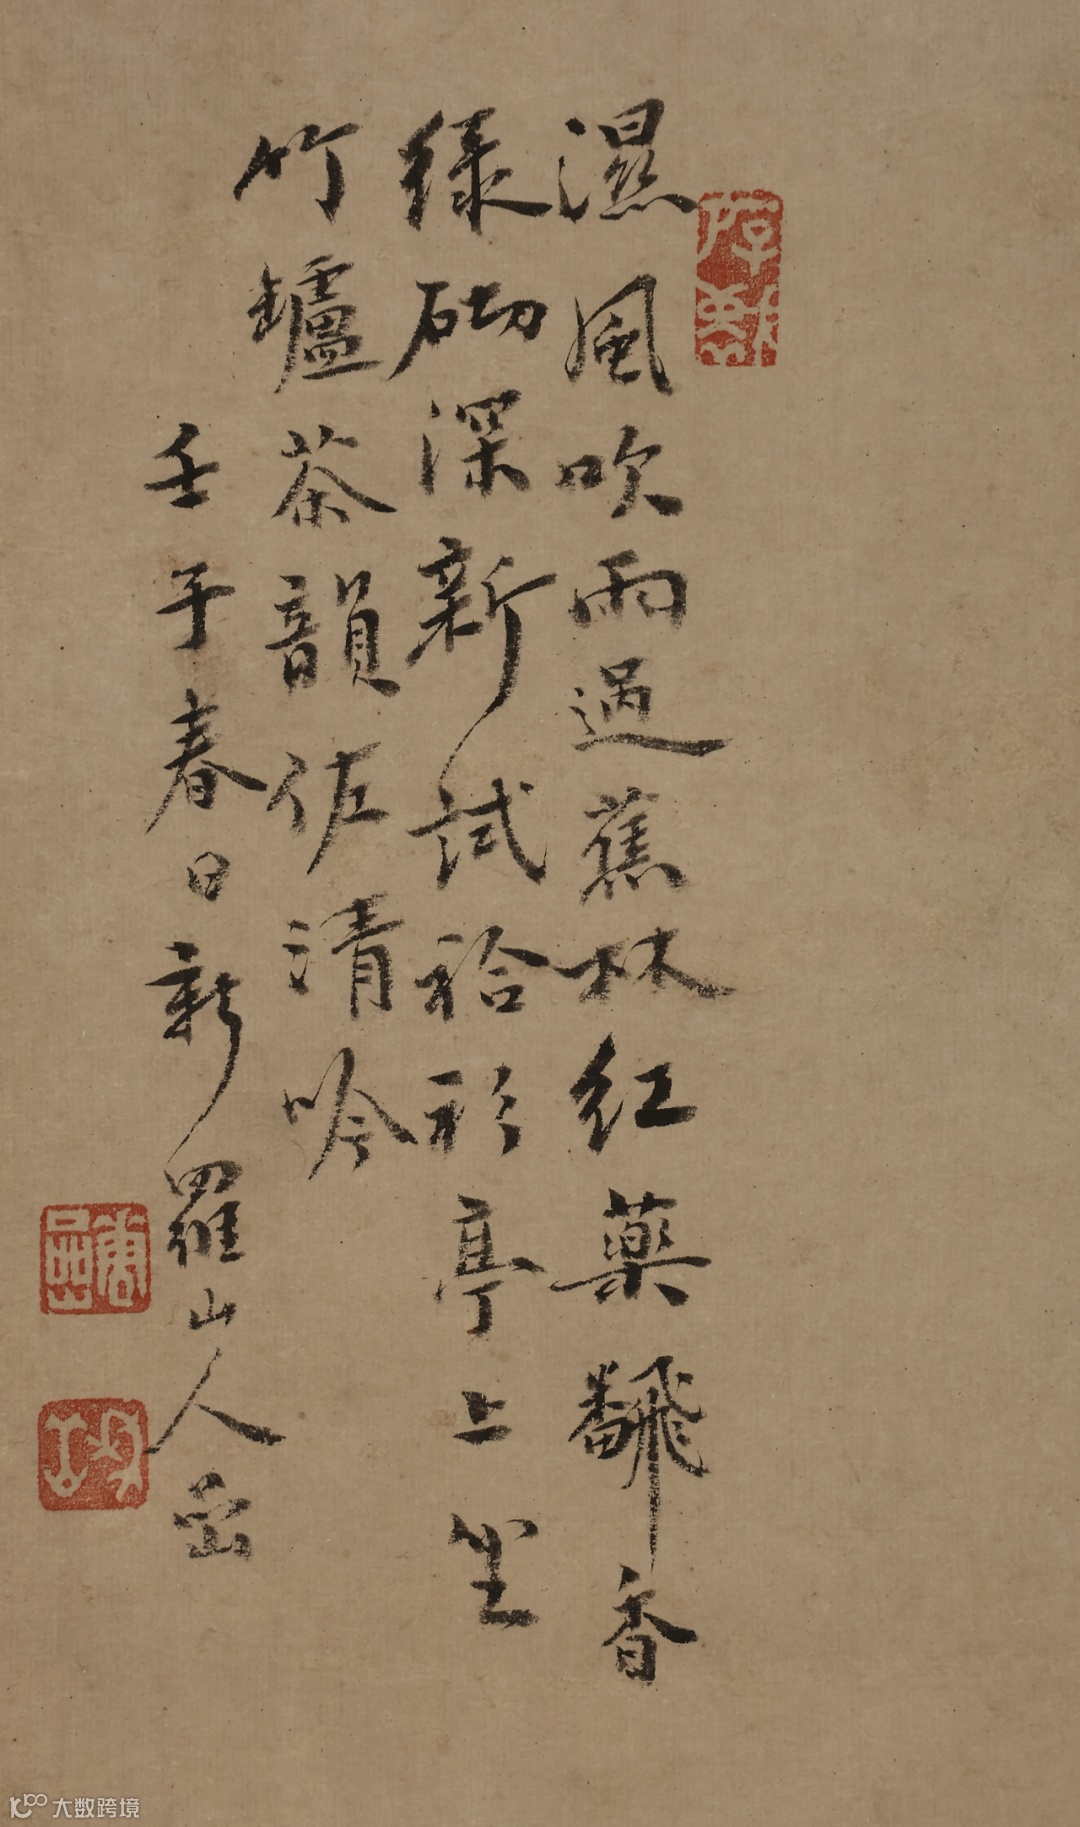 濕風吹雨過蕉林紅藥飜香
綠砌深新試袷衫亭上坐
竹罏茶韻佐清吟
壬子春日新羅山人喦
大数跨境